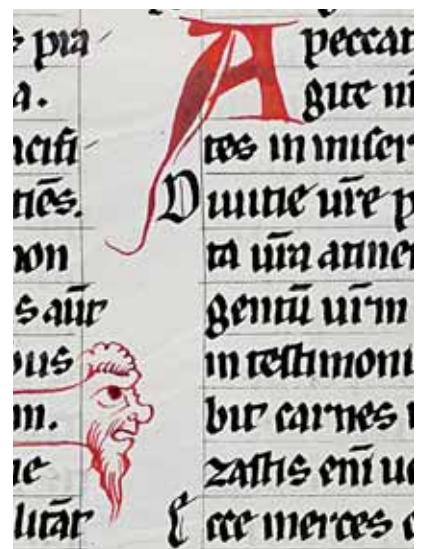 pra
a.
acifi
tiēs.
non
s aūt
m.
ne
litāt
A peccat
gite
tes in miser
Diuitie ur̄e p
ta ur̄a atinei
gentū ur̄m
in testimoni
bit carnes
zastis enī uo
Ecce merces